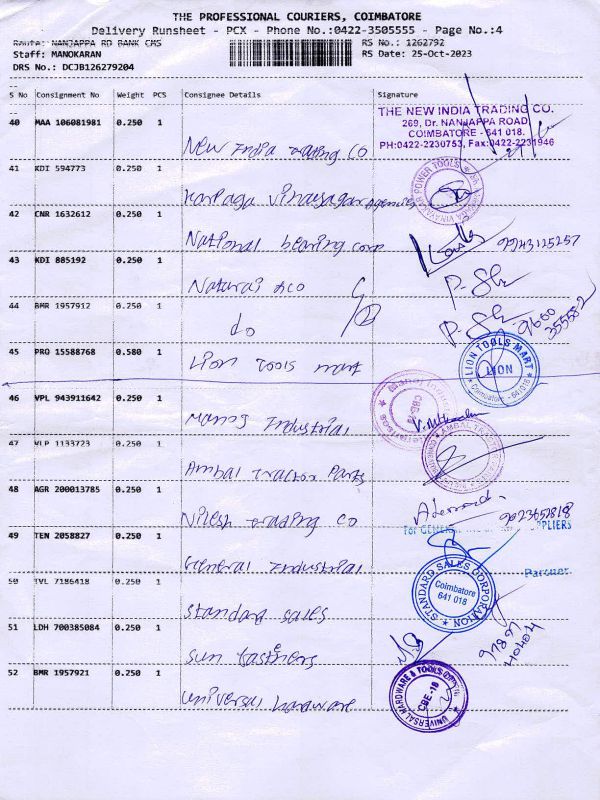 THE PROFESSIONAL COURIERS, COIMBATORE
Delivery Runsheet - PCX - Phone No.:0422-3505555 - Page No.:4
Route: NANJAPPA RD BANK CMS RS No.: 1262792
Staff: MANOKARAN RS Date: 25-Oct-2023
DRS No.: DCJB126279204
S No Consignment No Weight PCS Consignee Details Signature
THE NEW INDIA TRADING CO.
269, Dr. NANJAPPA ROAD
COIMBATORE - 641 018.
PH:0422-2230753, Fax:0422-2231946
40 MAA 106081981 0.250 1 New India trading CO
41 KDI 594773 0.250 1 Karpaga Vinayagar Agencies
42 CNR 1632612 0.250 1 National bearing corp
43 KDI 885192 0.250 1 Nataraj &co
44 BMR 1957912 0.250 1 do
45 PRO 15588768 0.580 1 Lion Tools mart
LION TOOLS MART
LION
Coimbatore - 641018
46 VPL 943911642 0.250 1 Manoj Industrial
47 VLP 1133723 0.250 1 Ambal Tractor Parts
48 AGR 200013785 0.250 1 Nilesh trading CO
49 TEN 2058827 0.250 1 General Industrial
Partner
50 TVL 7186418 0.250 1 Standard Sales
STANDARD SALES CORPORATION
Coimbatore
641 018
51 LDH 700385084 0.250 1 Sun fastners
52 BMR 1957921 0.250 1 Universal hardware
UNIVERSAL HARDWARE & TOOLS
CBE-18